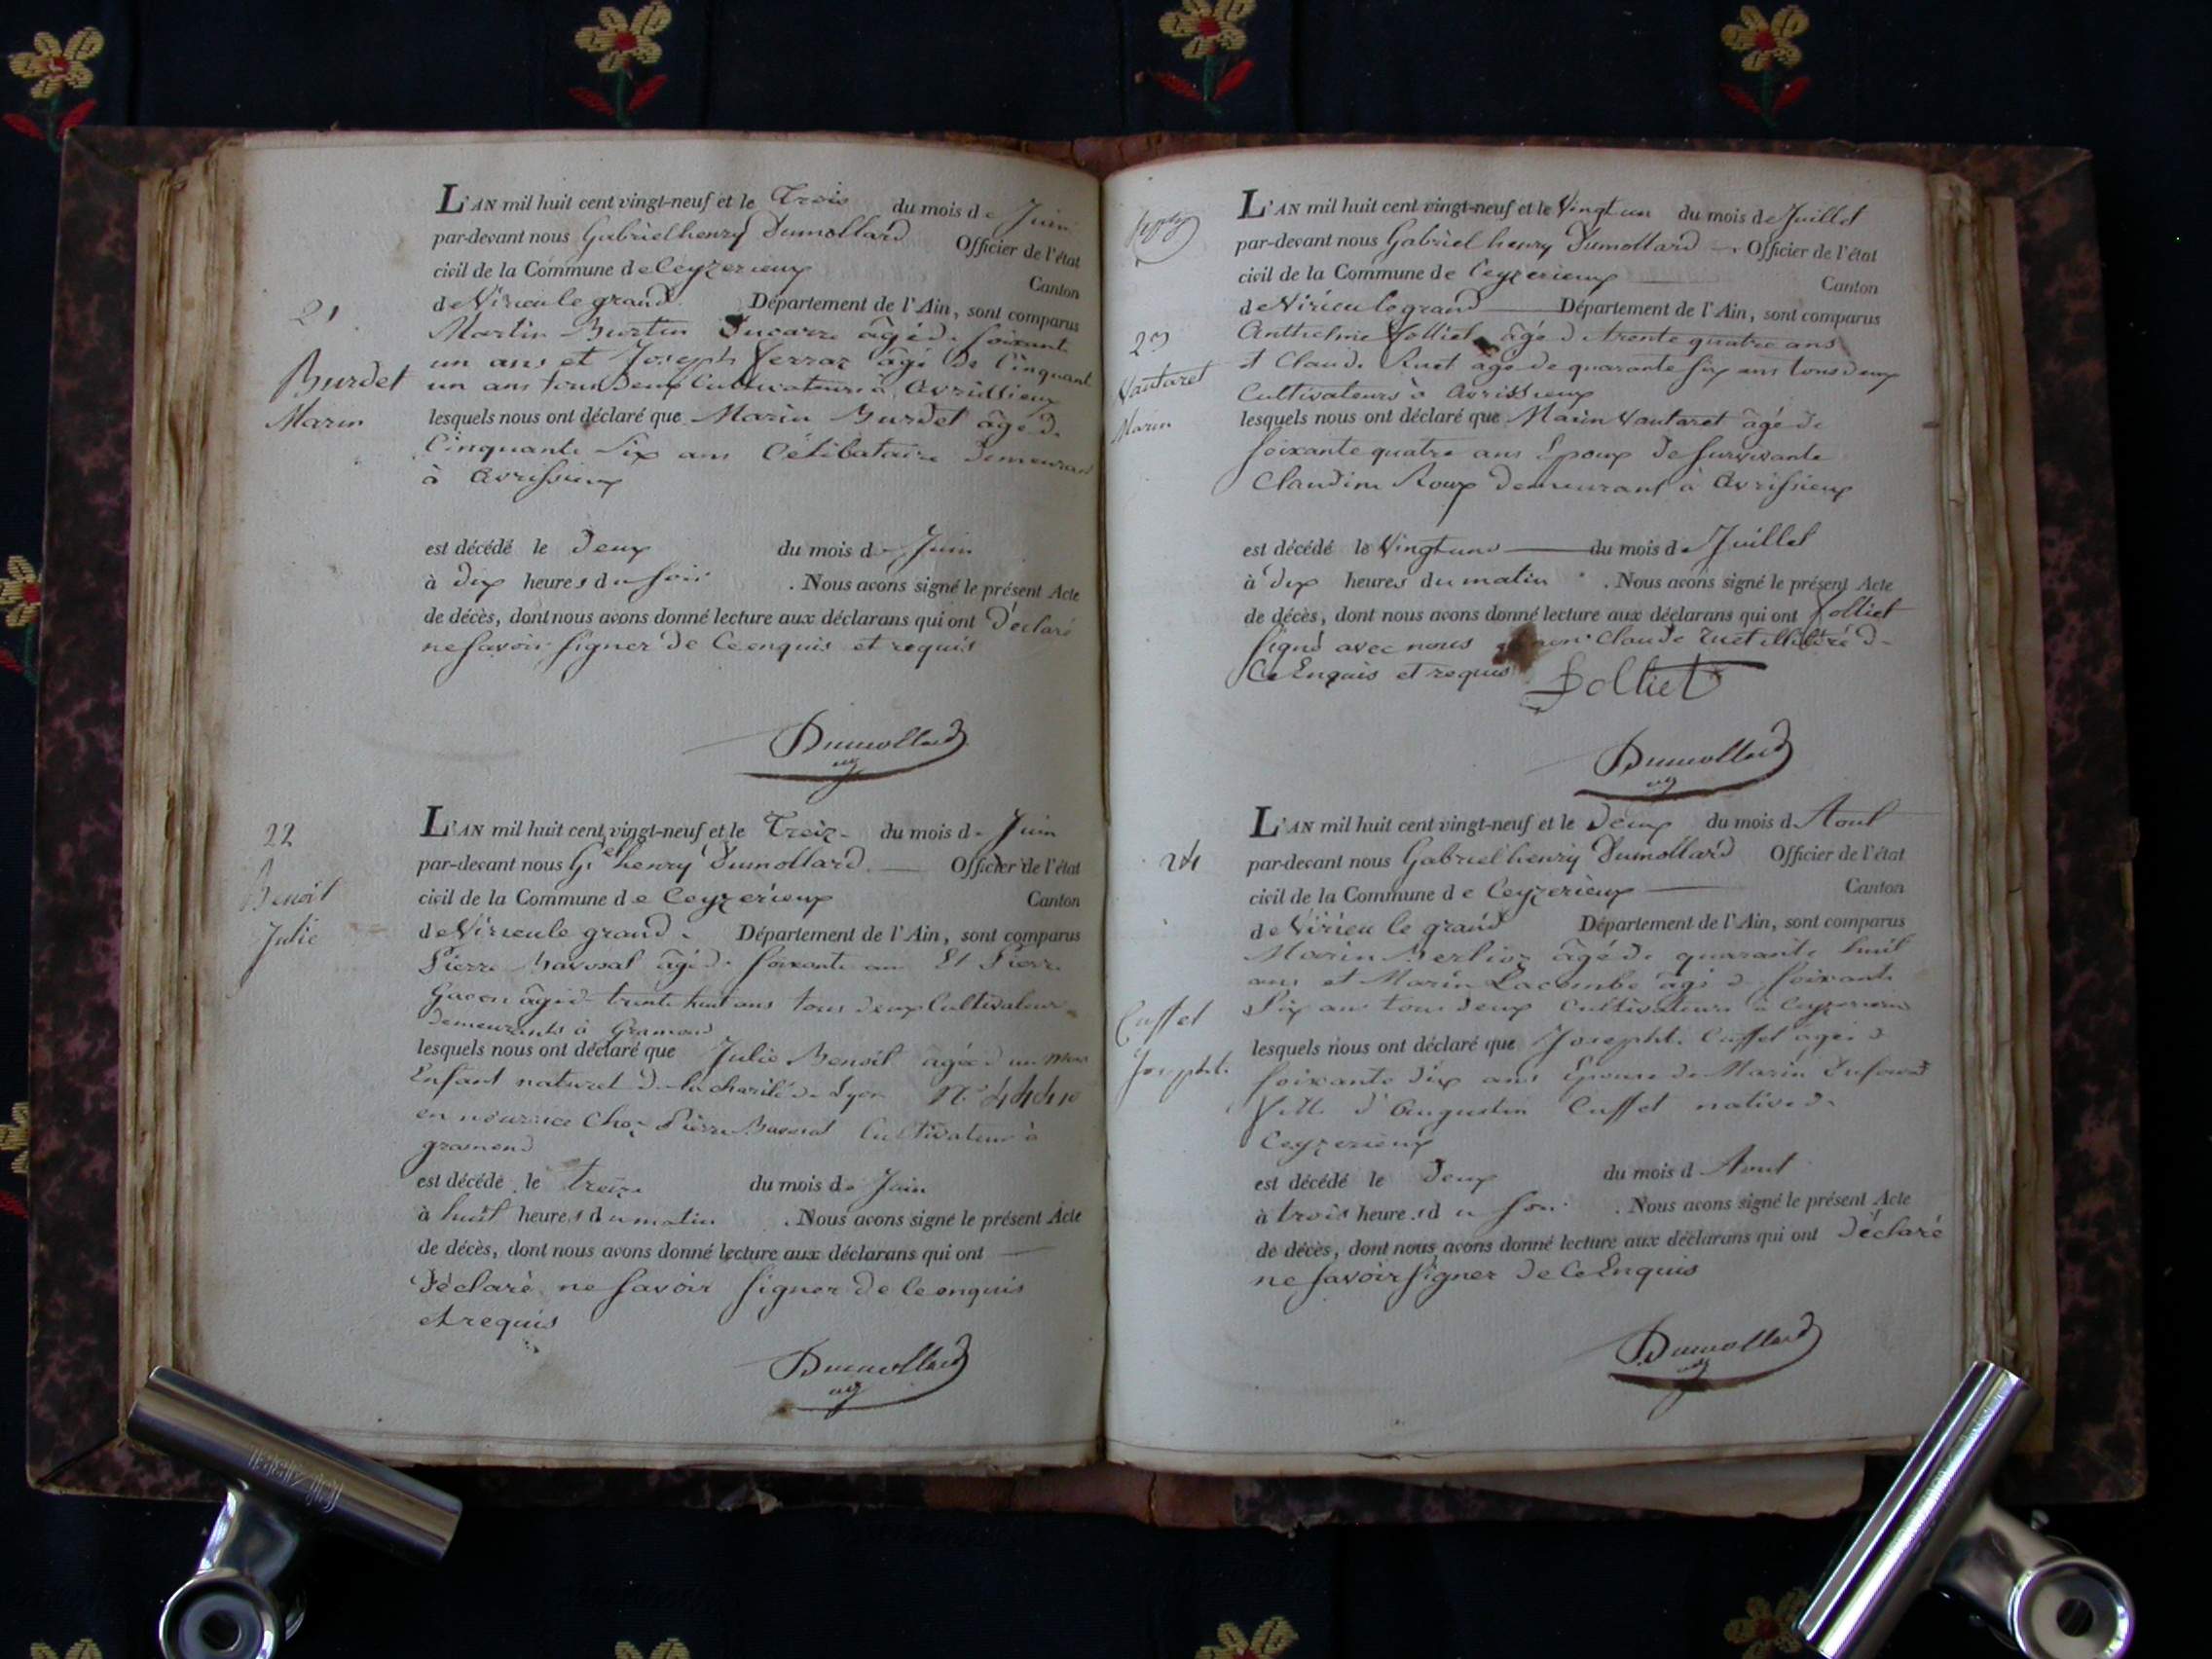 L'AN mil huit cent vingt-neuf et le Trois du mois de Juin
par-devant nous Gabriel henry Dumollard Officier de l'état
civil de la Commune de Ceyzerieux Canton
de Virieu le grand Département de l'Ain, sont comparus
21
Martin Burtin Ducarre âgé de soixante
un ans et Joseph ferraz âgé de Cinquante
Burdet
un ans tous deux Cultivateurs à Avrissieux
Marin
lesquels nous ont déclaré que Marin Burdet âgé de
Cinquante Six ans Célibataire demeurant
à Avrissieux
est décédé le deux du mois de Juin
à dix heures du soir . Nous avons signé le présent Acte
de décès, dont nous avons donné lecture aux déclarans qui ont déclaré
ne savoir signer de Ce enquis et requis
Dumollard
L'AN mil huit cent vingt-neuf et le Treize du mois de Juin
22
par-devant nous G.el henry Dumollard Officier de l'état
Benoit
civil de la Commune de Ceyzerieux Canton
Julie
de Virieu le grand Département de l'Ain, sont comparus
Pierre Bavosat âgé de soixante ans Et Pierre
Gacon âgé de trente huit ans tous deux Cultivateurs
demeurants à Gramond
lesquels nous ont déclaré que Julie Benoit âgée d'un mois
Enfant naturel de la charité de Lyon N.o
en nourrice Chez Pierre Bavosat Cultivateur à
gramond
est décédé le treize du mois de Juin
à huit heures du matin . Nous avons signé le présent Acte
de décès, dont nous avons donné lecture aux déclarans qui ont
Déclaré ne savoir signer de Ce enquis
et requis
Dumollard
L'AN mil huit cent vingt-neuf et le Vingt un du mois de Juillet
par-devant nous Gabriel henry Dumollard Officier de l'état
civil de la Commune de Ceyzerieux Canton
de Virieu le grand Département de l'Ain, sont comparus
23
Anthelme folliet âgé de trente quatre ans
Vautaret
et Claude Ruet âgé de quarante six ans tous deux
Cultivateurs à Avrissieux
Marin
lesquels nous ont déclaré que Marin Vautaret âgé de
soixante quatre ans Epoux de survivante
Claudine Roux demeurant à Avrissieux
est décédé le Vingt un du mois de Juillet
à dix heures du matin . Nous avons signé le présent Acte
de décès, dont nous avons donné lecture aux déclarans qui ont folliet
signé avec nous non Claude Ruet illitéré de
Ce Enquis et requis folliet
Dumollard
L'AN mil huit cent vingt-neuf et le deux du mois d Aout
24
par-devant nous Gabriel henry Dumollard Officier de l'état
civil de la Commune de Ceyzerieux Canton
de Virieu le grand Département de l'Ain, sont comparus
Marin Berlioz âgé de quarante huit
ans et Marin Lacombe âgé de soixante
Cuffet
Six ans tous deux Cultivateurs à Ceyzerieux
Josephte
lesquels nous ont déclaré que Josephte Cuffet âgée de
soixante dix ans Epouse de Marin Dufourd
fille d'Augustin Cuffet native de
Ceyzerieux
est décédé le deux du mois d Aout
à trois heures du soir . Nous avons signé le présent Acte
de décès, dont nous avons donné lecture aux déclarans qui ont déclaré
ne savoir signer de Ce Enquis
Dumollard